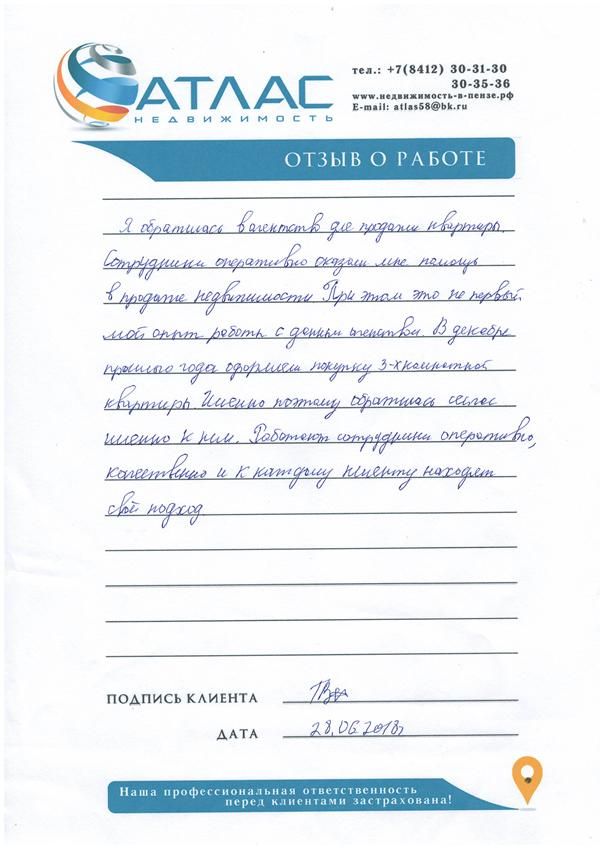 АТЛАС
НЕДВИЖИМОСТЬ
тел.: +7(8412) 30-31-30
30-35-36
www.недвижимость-в-пензе.рф
E-mail: atlas58@bk.ru
ОТЗЫВ О РАБОТЕ
Я обратилась в агентство для продажи квартиры.
Сотрудники оперативно оказали мне помощь
в продаже недвижимости. При этом это не первый
мой опыт работы с данным агентством. В декабре
прошлого года оформляли покупку 3-хкомнатной
квартиры. Именно поэтому обратилась сейчас
именно к ним. Работают сотрудники оперативно,
качественно и к каждому клиенту находят
свой подход
ПОДПИСЬ КЛИЕНТА
ДАТА 28.06.2018г
Наша профессиональная ответственность
перед клиентами застрахована!